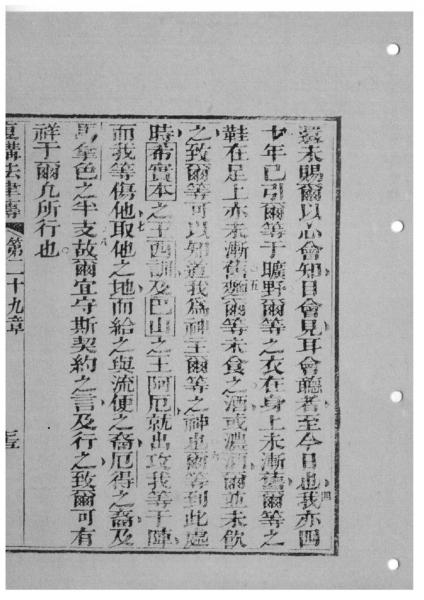 還未賜爾以心會知目會見耳會聽者至今日也我亦四
十年已引爾等于曠野爾等之衣在身上未漸舊爾等之
鞋在足上亦未漸舊麵爾等未食之酒或濃酒爾並未飲
之致爾等可以知道我為神王爾等之神也爾等到此處
時希實本之王西訓及巴山之王阿厄就出攻我等于陣
而我等傷他取他之地而給之與流便之裔厄得之裔及
馬拿色之半支故爾宜守斯契約之言及行之致爾可有
祥于爾凡所行也
復講法律傳 第二十九章